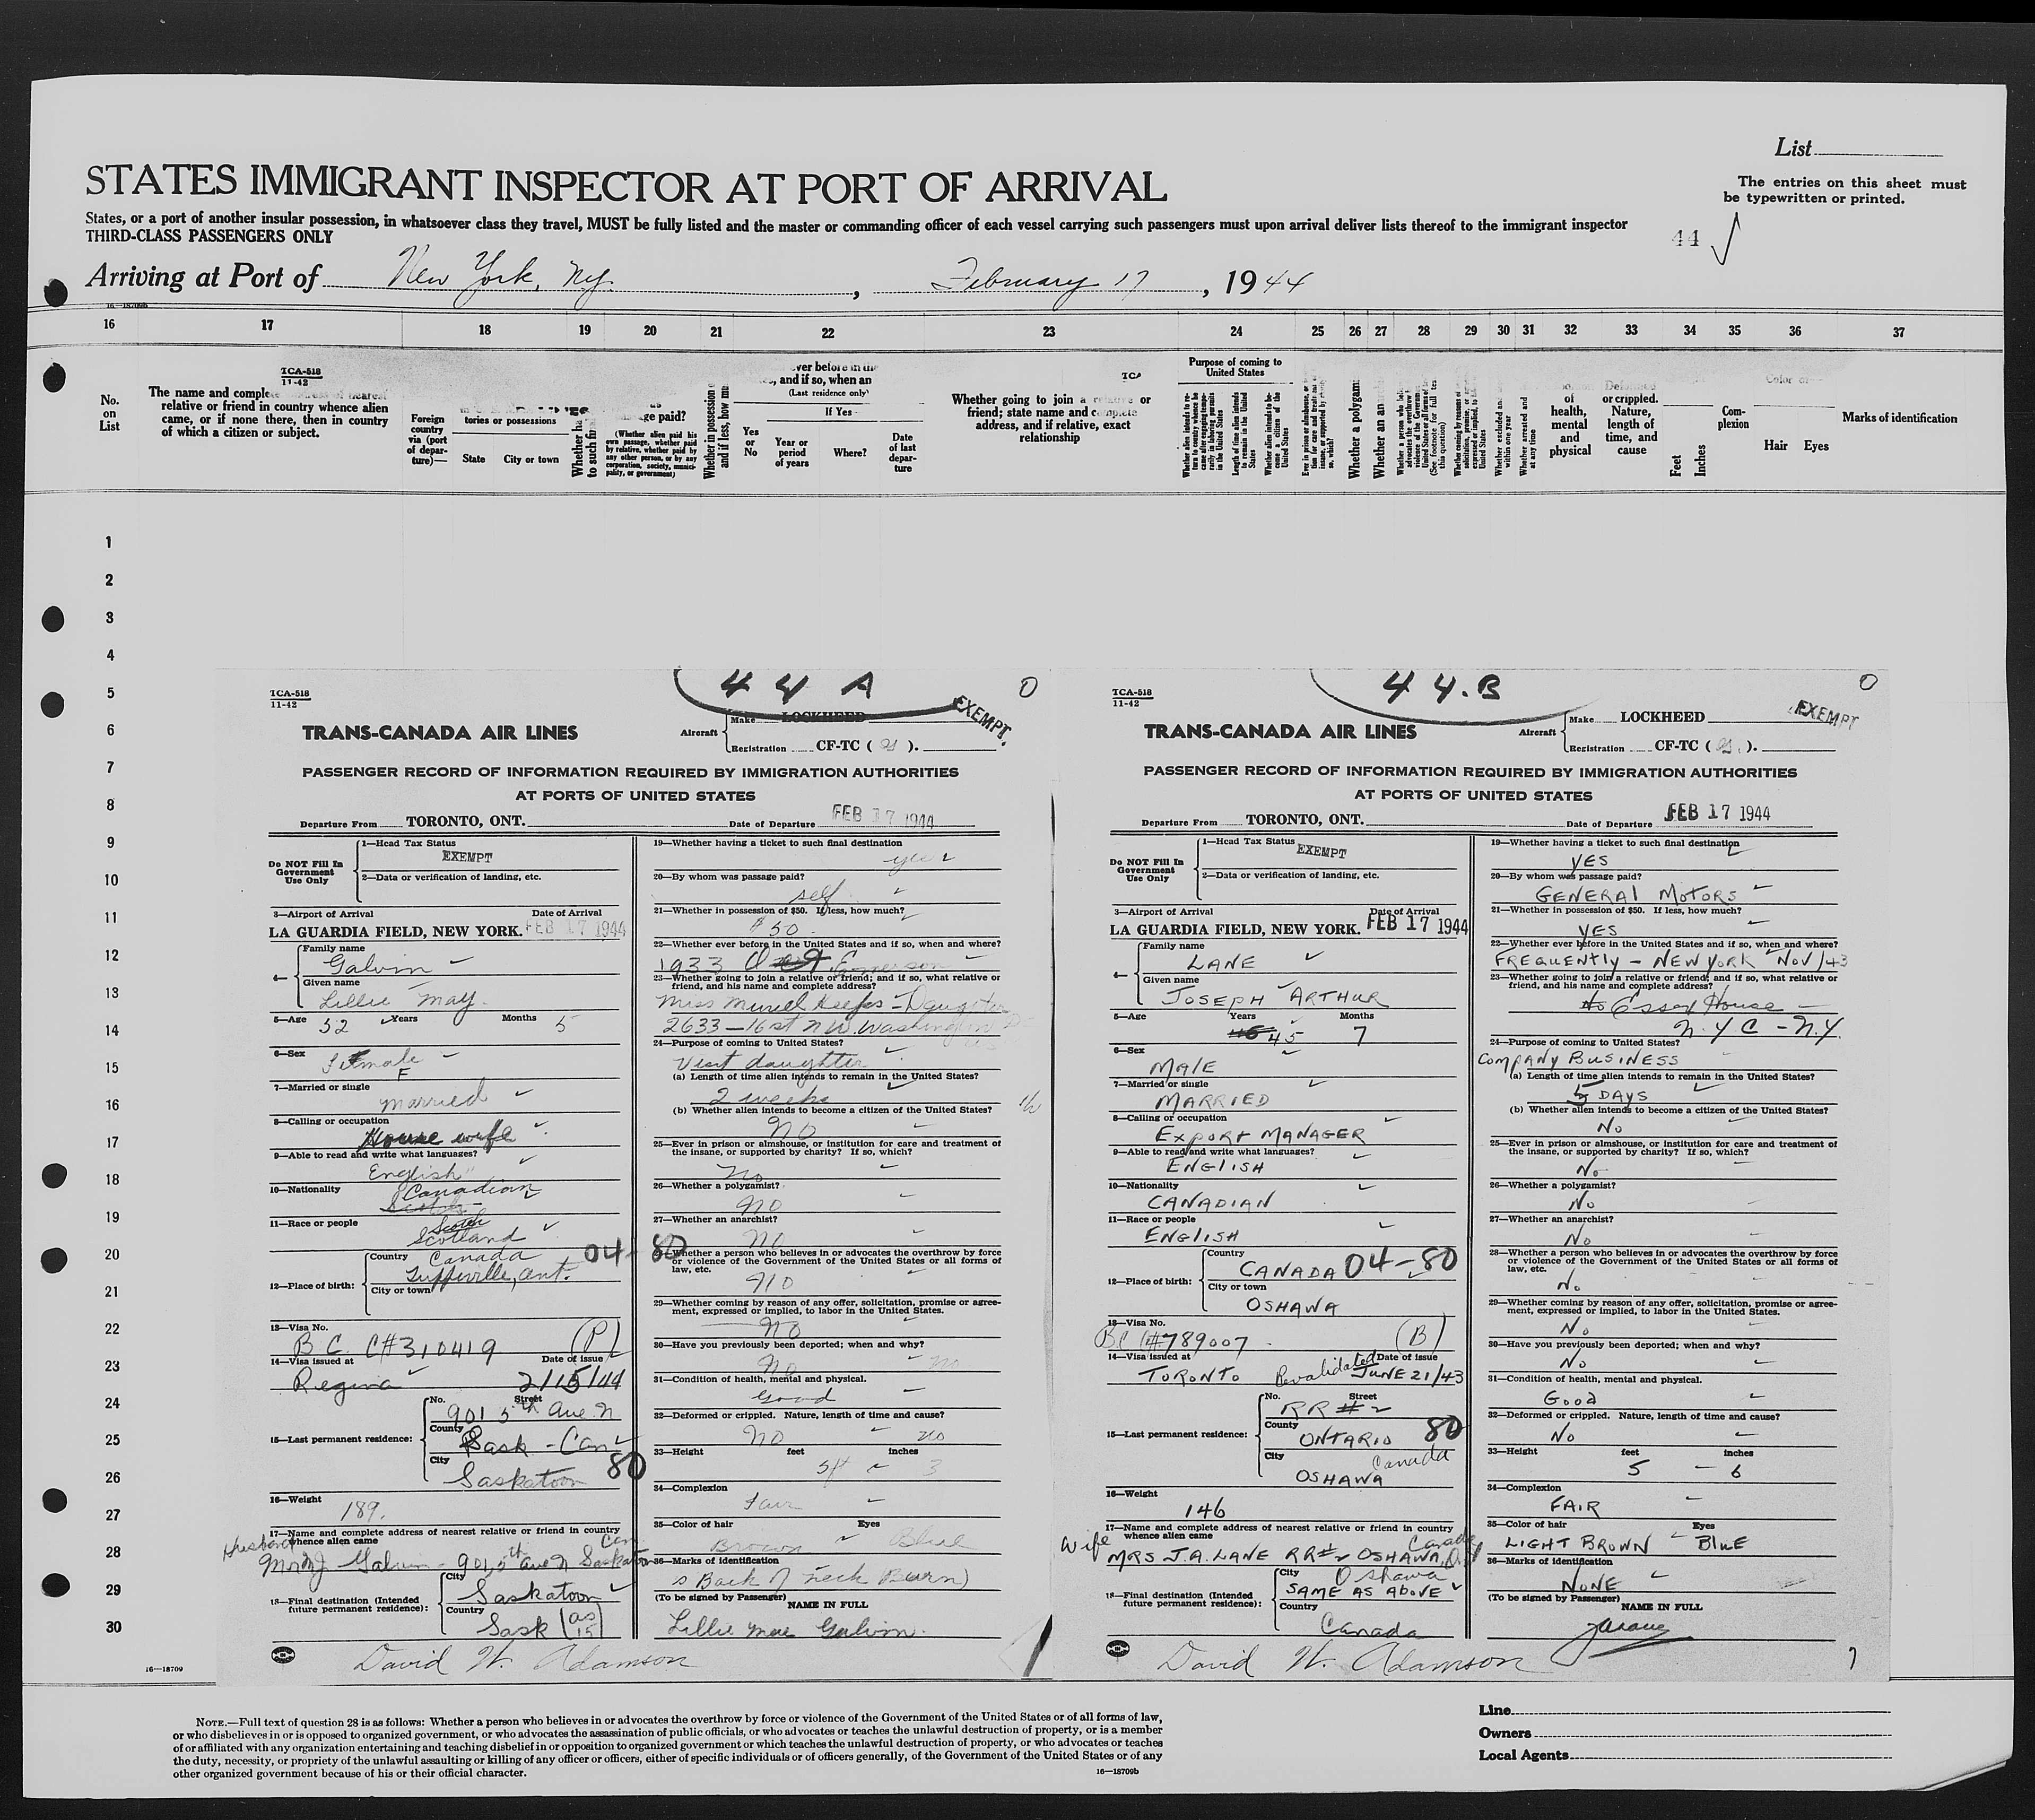 List
STATES IMMIGRANT INSPECTOR AT PORT OF ARRIVAL
The entries on this sheet must
be typewritten or printed.
States, or a port of another insular possession, in whatsoever class they travel, MUST be fully listed and the master or commanding officer of each vessel carrying such passengers must upon arrival deliver lists thereof to the immigrant inspector
THIRD-CLASS PASSENGERS ONLY
44
Arriving at Port of New York, N.Y. , February 17 , 1944
16—18709b
16 17 18 19 20 21 22 23 24 25 26 27 28 29 30 31 32 33 34 35 36 37
TCA-518
11-42
No.
on
List
The name and complete address of nearest
relative or friend in country whence alien
came, or if none there, then in country
of which a citizen or subject.
Foreign
country
via (port
of depar-
ture)—
tories or possessions
State City or town
ge paid?
(Whether alien paid his
own passage, whether paid
by relative, whether paid by
any other person, or by any
corporation, society, munici-
pality, or government)
Whether in possession
and if less, how mu
ever before in the
, and if so, when an
(Last residence only)
If Yes
Yes
or
No
Year or
period
of years
Where?
Date
of last
depar-
ture
Whether going to join a relative or
friend; state name and complete
address, and if relative, exact
relationship
Purpose of coming to
United States
Length of time alien intends
to remain in the United
States
Whether alien intends to be-
come a citizen of the
United States
Whether a polygam
Whether an
(See footnote for full tex
this question)
of
health,
mental
and
physical
Deformed
or crippled.
Nature,
length of
time, and
cause
Feet
Inches
Com-
plexion
Color of—
Hair Eyes
Marks of identification
1
2
3
4
5
6
7
8
9
10
11
12
13
14
15
16
17
18
19
20
21
22
23
24
25
26
27
28
29
30
44 A
0
TCA-518
11-42
EXEMPT.
TRANS-CANADA AIR LINES
Aircraft
Make LOCKHEED
Registration CF-TC ( ).
PASSENGER RECORD OF INFORMATION REQUIRED BY IMMIGRATION AUTHORITIES
AT PORTS OF UNITED STATES
Departure From TORONTO, ONT. Date of Departure FEB 17 1944
Do NOT Fill In
Government
Use Only
1—Head Tax Status
EXEMPT
2—Data or verification of landing, etc.
3—Airport of Arrival Date of Arrival
LA GUARDIA FIELD, NEW YORK. FEB 17 1944
4—
Family name
Galvin
Given name
Lillie May.
5—Age 52 Years Months 5
6—Sex
Female
F
7—Married or single
married
8—Calling or occupation
House wife
9—Able to read and write what languages?
English
10—Nationality Canadian
Scotch
11—Race or people Scotch
Scotland
12—Place of birth:
Country Canada 04-80
Tupperville, Ont.
City or town
13—Visa No.
B.C. C#310419 (P)
14—Visa issued at Date of issue
Regina 2/15/44
15—Last permanent residence:
No. Street
901 5th Ave N
County
Sask - Can
City 80
Saskatoon
16—Weight
189.
17—Name and complete address of nearest relative or friend in country
whence alien came
Husband Can
Galvin - 901, 5th Ave N Saskatoon
18—Final destination (Intended
future permanent residence):
City
Saskatoon
Country
Sask (as 15)
19—Whether having a ticket to such final destination
yes
20—By whom was passage paid?
self
21—Whether in possession of $50. If less, how much?
$50
22—Whether ever before in the United States and if so, when and where?
1933 Emerson
23—Whether going to join a relative or friend; and if so, what relative or
friend, and his name and complete address?
Miss Muriel Keefes - Daughter
2633—16 st N.W. Washington DC
24—Purpose of coming to United States?
Visit daughter
(a) Length of time alien intends to remain in the United States?
2 weeks
(b) Whether alien intends to become a citizen of the United States?
No
25—Ever in prison or almhouse, or institution for care and treatment of
the insane, or supported by charity? If so, which?
No
26—Whether a polygamist?
No
27—Whether an anarchist?
No
28—Whether a person who believes in or advocates the overthrow by force
or violence of the Government of the United States or all forms of
law, etc.
No
29—Whether coming by reason of any offer, solicitation, promise or agree-
ment, expressed or implied, to labor in the United States.
No
30—Have you previously been deported; when and why?
No no
31—Condition of health, mental and physical.
Good
32—Deformed or crippled. Nature, length of time and cause?
No no
33—Height feet inches
5ft 3
34—Complexion
Fair
35—Color of hair Eyes
Brown Blue
36—Marks of identification
s Back of neck Burn)
(To be signed by Passenger)
NAME IN FULL
Lillie Mae Galvin.
David W. Adamson
44.B
0
TCA-518
11-42
EXEMPT
TRANS-CANADA AIR LINES
Aircraft
Make LOCKHEED
Registration CF-TC ( ).
PASSENGER RECORD OF INFORMATION REQUIRED BY IMMIGRATION AUTHORITIES
AT PORTS OF UNITED STATES
Departure From TORONTO, ONT. Date of Departure FEB 17 1944
Do NOT Fill In
Government
Use Only
1—Head Tax Status EXEMPT
2—Data or verification of landing, etc.
3—Airport of Arrival Date of Arrival
LA GUARDIA FIELD, NEW YORK. FEB 17 1944
4—
Family name
LANE
Given name
JOSEPH ARTHUR
5—Age Years Months
46 45 7
6—Sex
MALE
7—Married or single
MARRIED
8—Calling or occupation
EXPORT MANAGER
9—Able to read and write what languages?
ENGLISH
10—Nationality
CANADIAN
11—Race or people
ENGLISH
12—Place of birth:
Country
CANADA 04-80
City or town
OSHAWA
13—Visa No.
BC C#789007 (B)
14—Visa issued at Date of issue
TORONTO Revalidated JUNE 21/43
15—Last permanent residence:
No. Street
RR #2
County
ONTARIO 80
City Canada
OSHAWA
16—Weight
146
17—Name and complete address of nearest relative or friend in country
whence alien came
Wife Canada
MRS J.A. LANE RR#2 OSHAWA, Ont
18—Final destination (Intended
future permanent residence):
City Oshawa
SAME AS ABOVE
Country
Canada
19—Whether having a ticket to such final destination
YES
20—By whom was passage paid?
GENERAL MOTORS
21—Whether in possession of $50. If less, how much?
YES
22—Whether ever before in the United States and if so, when and where?
FREQUENTLY - NEW YORK NOV/43
23—Whether going to join a relative or friend; and if so, what relative or
friend, and his name and complete address?
No Essex House
N.Y.C - N.Y.
24—Purpose of coming to United States?
COMPANY BUSINESS
(a) Length of time alien intends to remain in the United States?
5 DAYS
(b) Whether alien intends to become a citizen of the United States?
No
25—Ever in prison or almshouse, or institution for care and treatment of
the insane, or supported by charity? If so, which?
No
26—Whether a polygamist?
No
27—Whether an anarchist?
No
28—Whether a person who believes in or advocates the overthrow by force
or violence of the Government of the United States or all forms of
law, etc.
No
29—Whether coming by reason of any offer, solicitation, promise or agree-
ment, expressed or implied, to labor in the United States.
No
30—Have you previously been deported; when and why?
No
31—Condition of health, mental and physical.
GOOD
32—Deformed or crippled. Nature, length of time and cause?
No
33—Height feet inches
5 - 6
34—Complexion
FAIR
35—Color of hair Eyes
LIGHT BROWN BLUE
36—Marks of identification
NONE
(To be signed by Passenger)
NAME IN FULL
JALane
David W. Adamson
16—18709
NOTE.—Full text of question 28 is as follows: Whether a person who believes in or advocates the overthrow by force or violence of the Government of the United States or of all forms of law,
or who disbelieves in or is opposed to organized government, or who advocates the assassination of public officials, or who advocates or teaches the unlawful destruction of property, or is a member
of or affiliated with any organization entertaining and teaching disbelief in or opposition to organized government or which teaches the unlawful destruction of property, or who advocates or teaches
the duty, necessity, or propriety of the unlawful assaulting or killing of any officer or officers, either of specific individuals or of officers generally, of the Government of the United States or of any
other organized government because of his or their official character.
16—18709b
Line
Owners
Local Agents